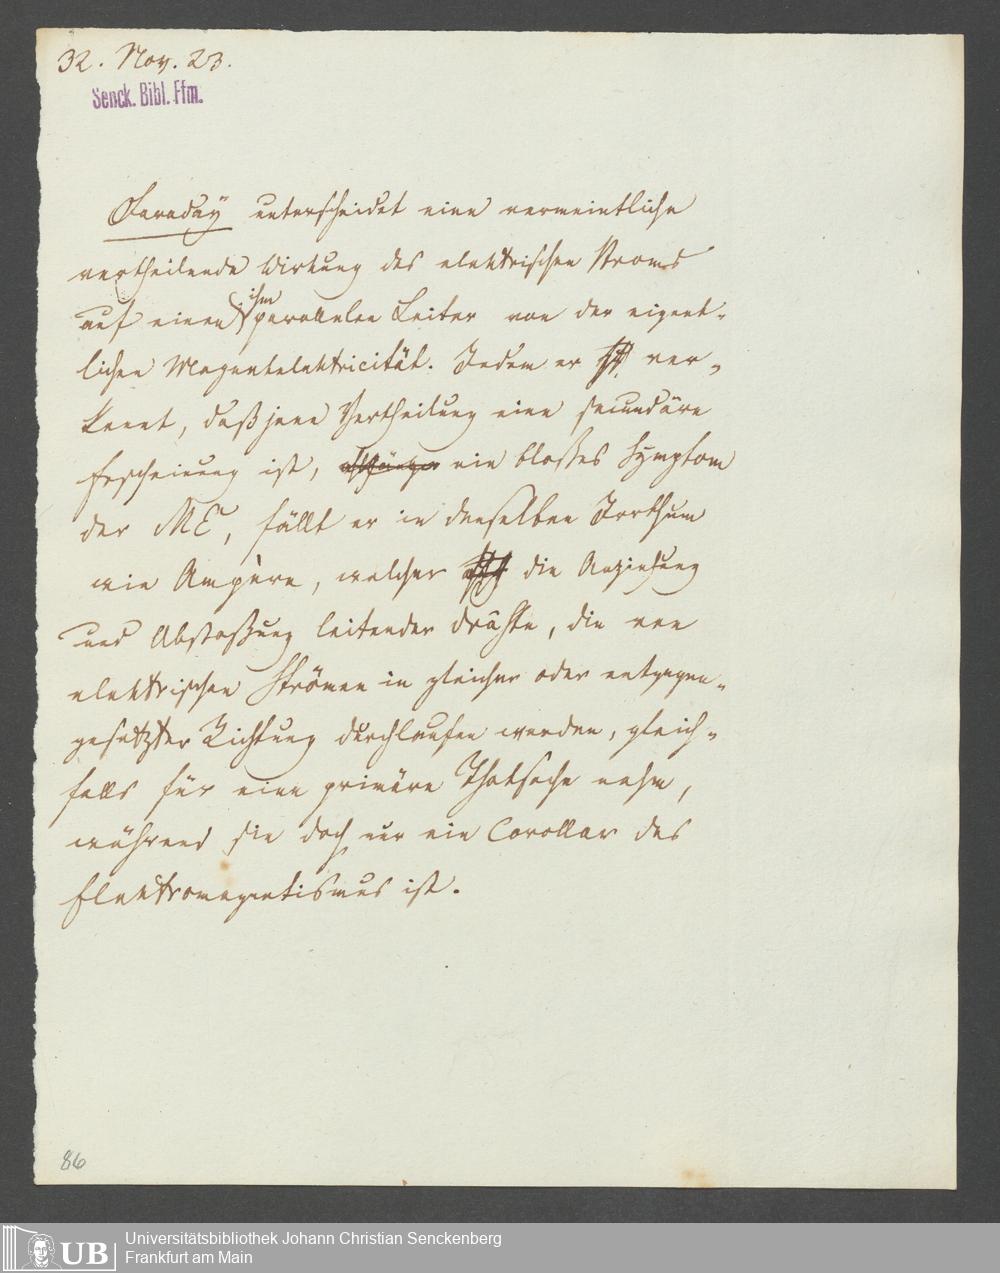 32. Nov. 23.
Senck. Bibl. Ffm.
Faraday unterscheidet eine vermeintliche
vertheilende Wirkung des elektrischen Stroms
auf einen ihm parallelen Leiter von der eigent-
lichen Magnetelektricität. Indem er ver-
kennt, daß jene Vertheilung eine secundäre
Erscheinung ist, ein bloßes Symptom
der ME, fällt er in denselben Irrthum
wie Ampère, welcher die Anziehung
und Abstoßung leitender Drähte, die von
elektrischen Strömen in gleicher oder entgegen-
gesetzter Richtung durchlaufen werden, gleich-
falls für eine primäre Thatsache nahm,
während sie doch nur ein Corollar des
Elektromagnetismus ist.
86
UB
Universitätsbibliothek Johann Christian Senckenberg
Frankfurt am Main